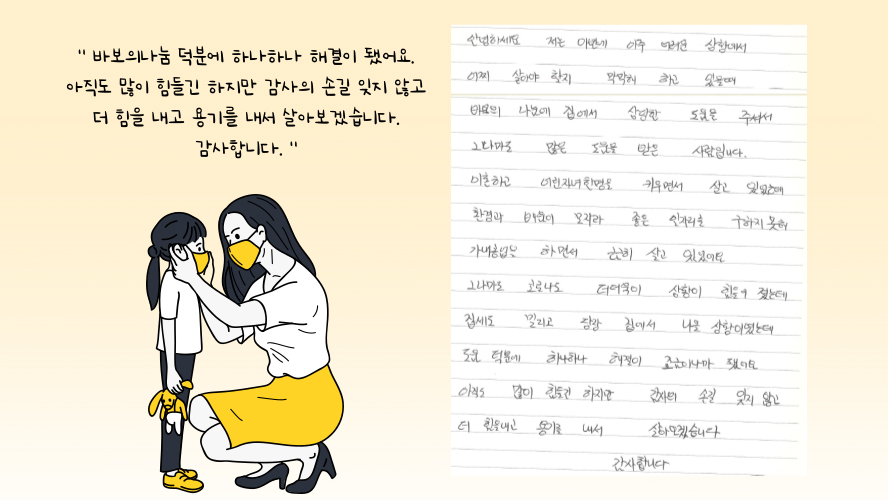 " 바보의나눔 덕분에 하나하나 해결이 됐어요.
아직도 많이 힘들긴 하지만 감사의 손길 잊지 않고
더 힘을 내고 용기를 내서 살아보겠습니다.
감사합니다. "
안녕하세요 저는 이번에 아주 어려운 상황에서
어찌 살아야 할지 막막해 하고 있을때
바보의 나눔에 집에서 상당한 도움을 주셔서
그나마도 많은 도움을 받은 사람입니다.
이혼하고 어린자녀한명을 키우면서 살고 있었는데
환경과 배움이 모자라 좋은 일자리를 구하지 못해
가내부업을 하면서 근근히 살고 있었어요
그나마도 코로나로 더더욱이 상황이 힘들어 졌는데
집세도 밀리고 당장 집에서 나올 상황이였는데
도움 덕분에 하나하나 해결이 조금이나마 됐어요
아직도 많이 힘들긴 하지만 감사의 손길 잊지 않고
더 힘을내고 용기를 내서 살아보겠습니다
감사합니다